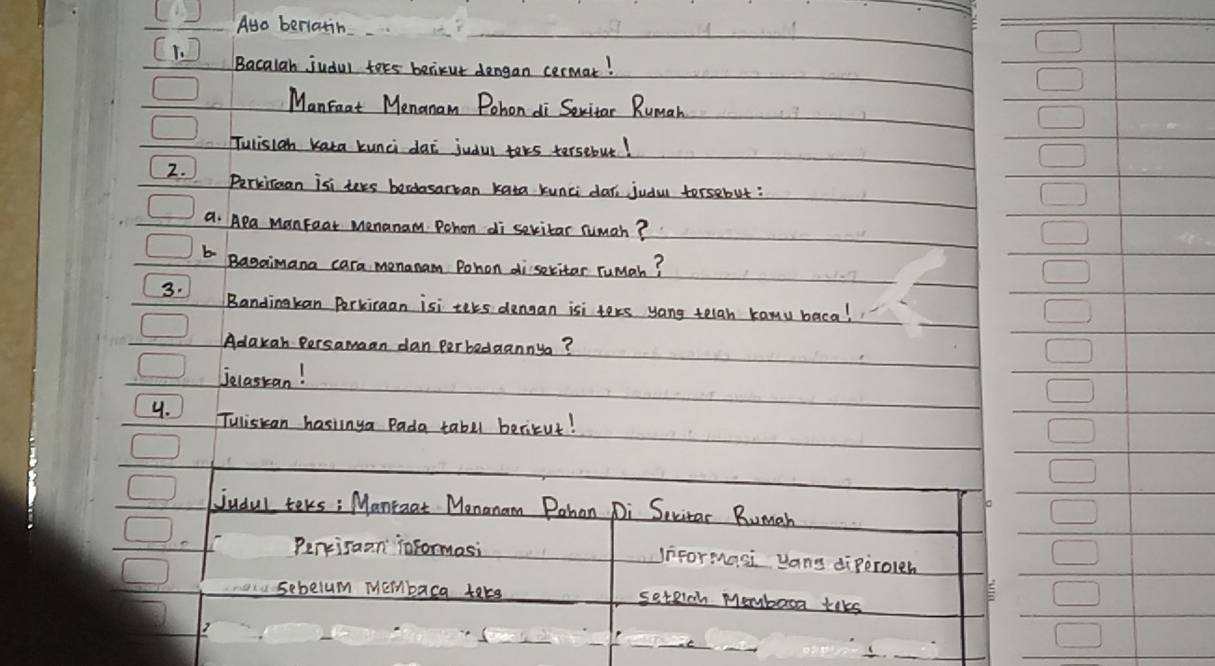 Ayo berlatih
1. Bacalah judul teks berikut dengan cermat!
Manfaat Menanam Pohon di Sekitar Rumah
Tulislah kata kunci dari judul teks tersebut!
2. Perkiraan isi teks berdasarkan kata kunci dari judul tersebut:
a. Apa Manfaat Menanam Pohon di sekitar rumah?
b Bagaimana cara menanam Pohon di sekitar rumah?
3. Bandingkan Perkiraan isi teks dengan isi teks yang telah kamu baca!
Adakah Persamaan dan perbedaannya?
jelaskan!
4. Tuliskan hasilnya Pada tabel berikut!
Judul teks: Manfaat Menanam Pohon Di Sekitar Rumah
Perkiraan informasi
sebelum Membaca teks
informasi yang diperoleh
setelah Membaca teks